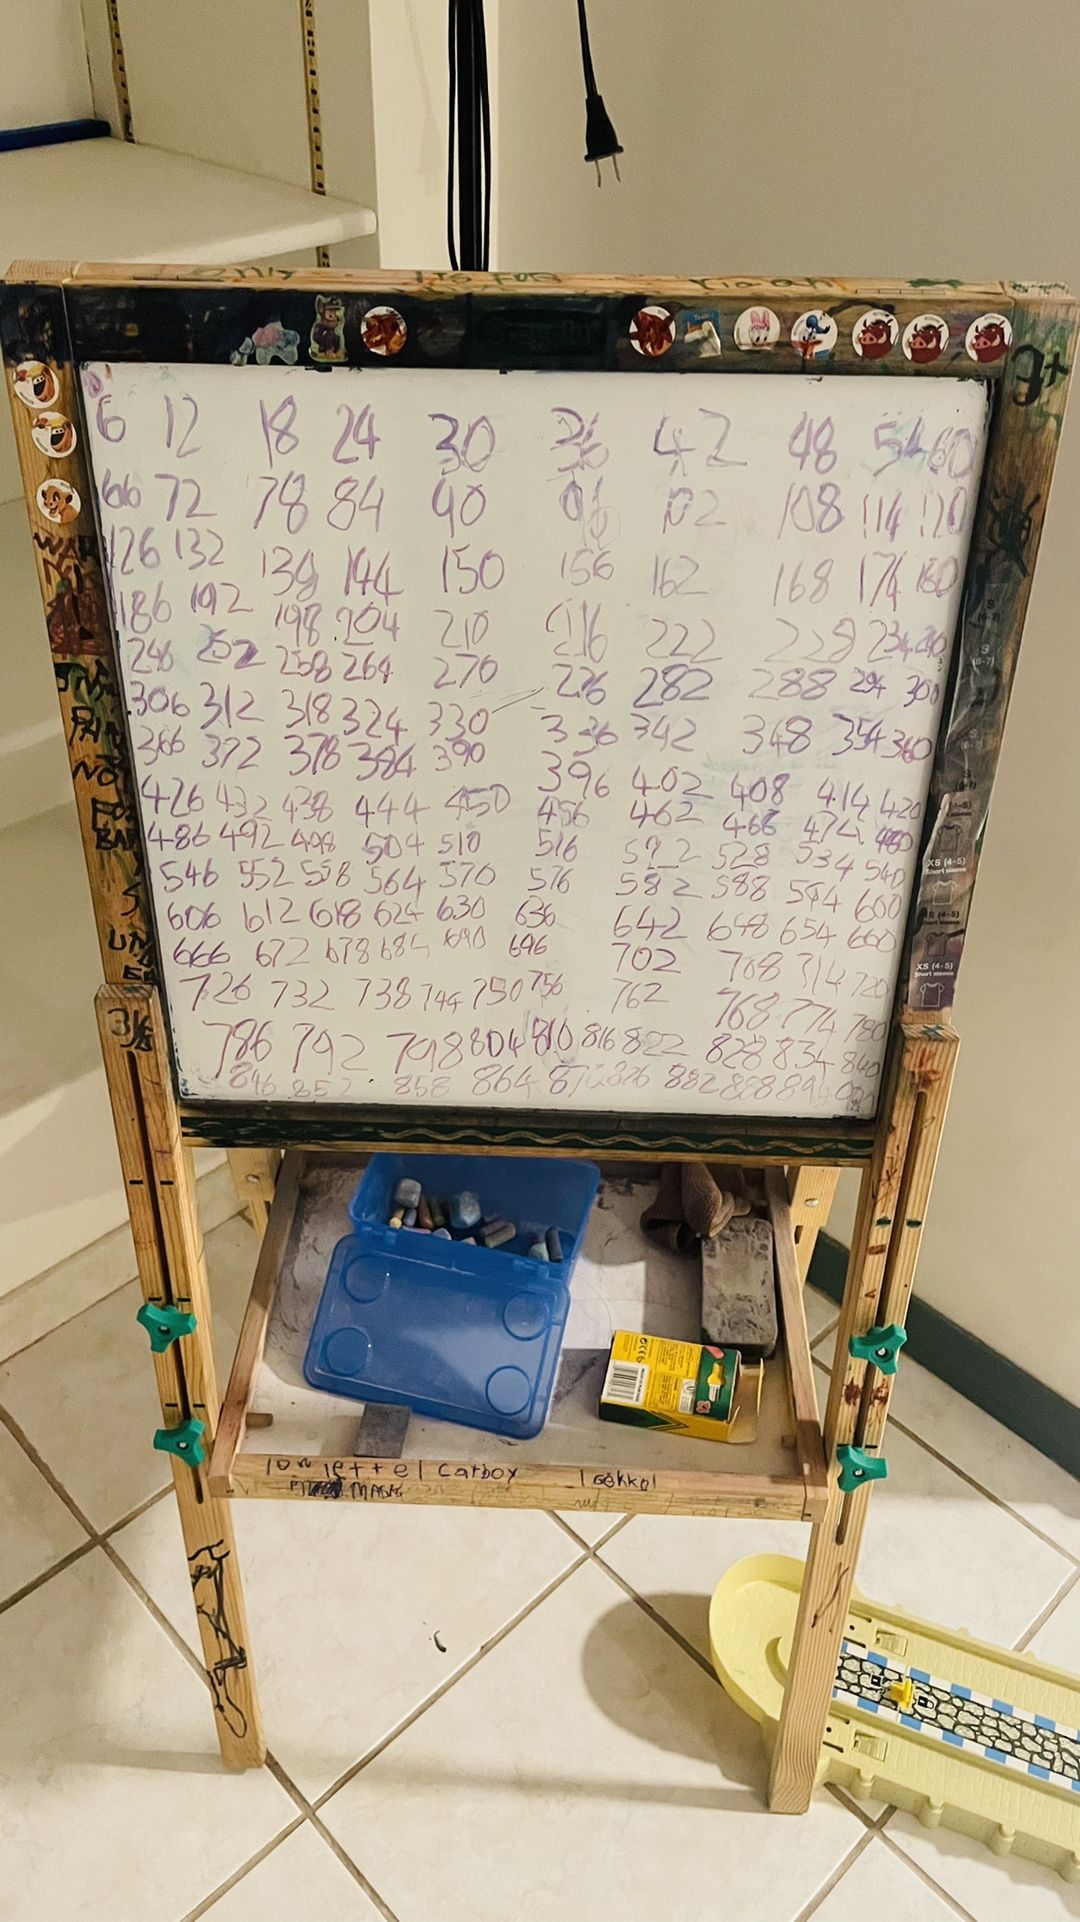 6 12 18 24 30 36 42 48 54 60
66 72 78 84 90 96 102 108 114 120
126 132 138 144 150 156 162 168 174 180
186 192 198 204 210 216 222 228 234 240
246 252 258 264 270 276 282 288 294 300
306 312 318 324 330 336 342 348 354 360
366 372 378 384 390 396 402 408 414 420
426 432 438 444 450 456 462 468 474 480
486 492 498 504 510 516 522 528 534 540
546 552 558 564 570 576 582 588 594 600
606 612 618 624 630 636 642 648 654 660
666 672 678 684 690 696 702 708 714 720
726 732 738 744 750 756 762 768 774 780
786 792 798 804 810 816 822 828 834 840
846 852 858 864 870 876 882 888 894 900
7+
3 1/2
NOT
FOR
XS (4-5)
Short sleeve
XS (4-5)
Short sleeve
XS (4-5)
Short sleeve